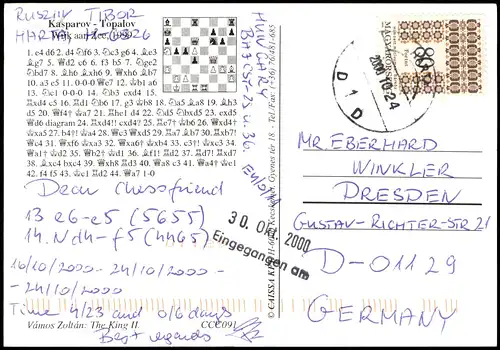 RUSZIN TIBOR
Kasparov - Topalov
Wijk aan Zee, 1999
1. e4 d6 2. d4 ♘f6 3. ♘c3 g6 4. ♗e3
♗g7 5. ♕d2 c6 6. f3 b5 7. ♘ge2
♘bd7 8. ♗h6 ♗xh6 9. ♕xh6 ♗b7
10. a3 e5 11. 0-0-0 ♕e7 12. ♔b1 a6
13. ♘c1 0-0-0 14. ♘b3 exd4 15.
♖xd4 c5 16. ♖d1 ♘b6 17. g3 ♔b8 18. ♘a5 ♗a8 19. ♗h3
d5 20. ♕f4† ♔a7 21. ♖he1 d4 22. ♘d5 ♘bxd5 23. exd5
♕d6 diagram 24. ♖xd4! cxd4 25. ♖e7† ♔b6 26. ♕xd4†
♔xa5 27. b4† ♔a4 28. ♕c3 ♕xd5 29. ♖a7 ♗b7 30. ♖xb7
♕c4 31. ♕xf6 ♔xa3 32. ♕xa6† ♔xb4 33. c3†! ♔xc3 34.
♕a1† ♔d2 35. ♕b2† ♔d1 36. ♗f1! ♖d2 37. ♖d7! ♖xd7
38. ♗xc4 bxc4 39. ♕xh8 ♖d3 40. ♕a8 c3 41. ♕a4† ♔e1
42. f4 f5 43. ♔c1 ♖d2 44. ♕a7 1-0
HUNGARY
© CAISSA Kft. H-6000 Kecskemét, Gyenes tér 18. - Tel./Fax: (+36) 76/481-685
MAGYARORSZÁG
2000 10-24
D 1 D
MR. EBERHARD
WINKLER
DRESDEN
GUSTAV-RICHTER-STR 21
D-01129
GERMANY
Dear Chessfriend
13 e6-e5 (5655)
14. Nd4-f5 (4465)
16/10/2000 - 24/10/2000 -
- 24/10/2000
Time 4/23 and 0/6 days
Best regards
30. Okt. 2000
Eingegangen am
Vámos Zoltán: The King II.
CCC091